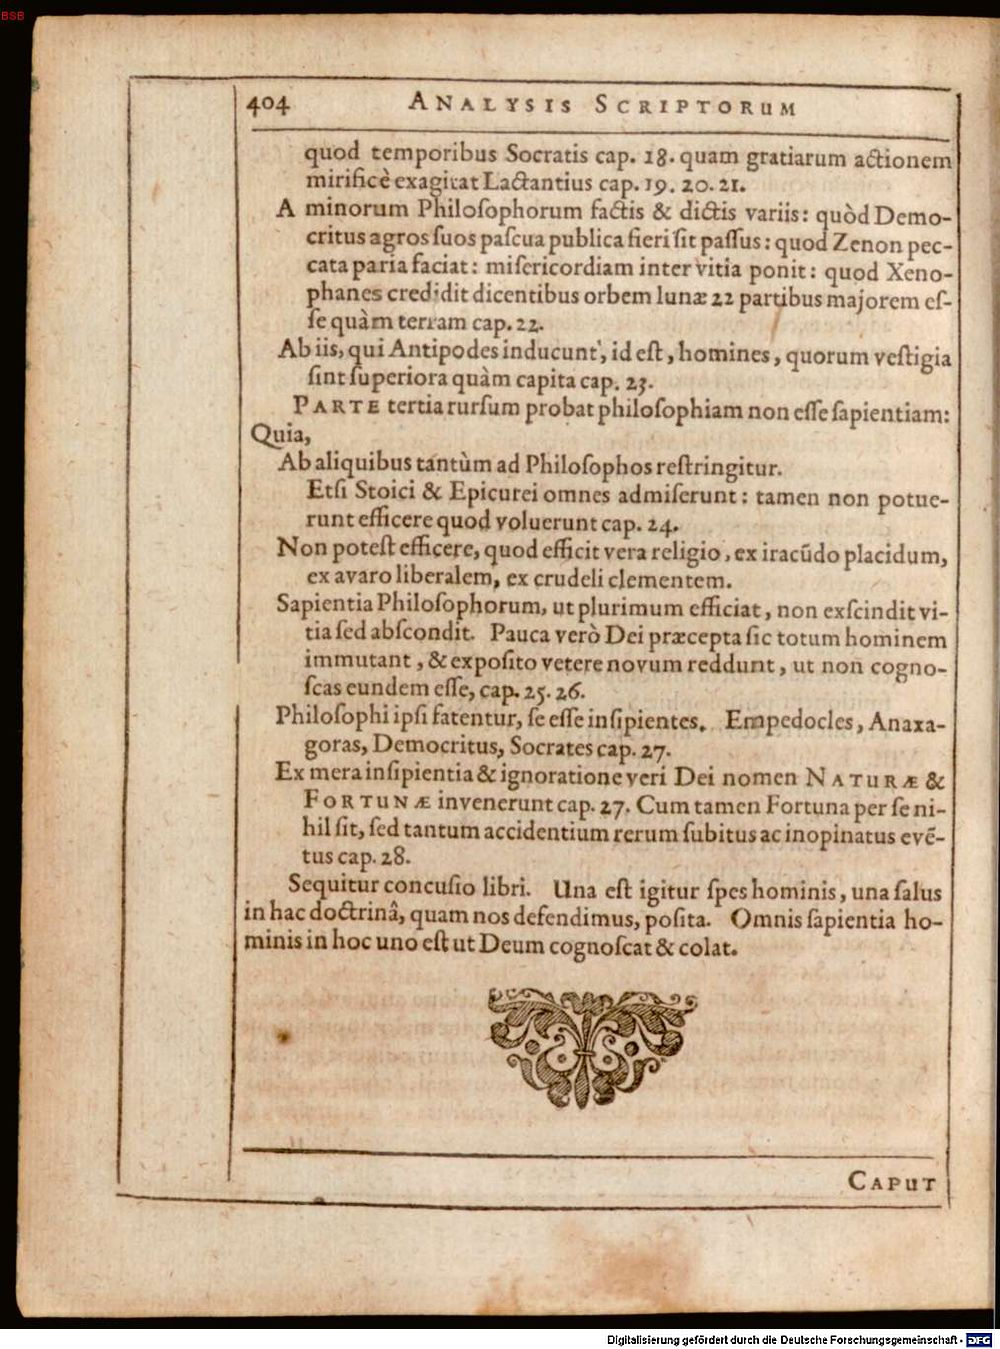 BSB
404 ANALYSIS SCRIPTORUM
quod temporibus Socratis cap. 18. quam gratiarum actionem
mirificè exagitat Lactantius cap. 19. 20. 21.
A minorum Philoſophorum factis & dictis variis: quòd Demo-
critus agros ſuos paſcua publica fieri ſit paſſus: quod Zenon pec-
cata paria faciat: miſericordiam inter vitia ponit: quod Xeno-
phanes credidit dicentibus orbem lunæ 22 partibus majorem eſ-
ſe quàm terram cap. 22.
Ab iis, qui Antipodes inducunt, id eſt, homines, quorum veſtigia
ſint ſuperiora quàm capita cap. 23.
PARTE tertia rurſum probat philoſophiam non eſſe ſapientiam:
Quia,
Ab aliquibus tantùm ad Philoſophos reſtringitur.
Etſi Stoici & Epicurei omnes admiſerunt: tamen non potue-
runt efficere quod voluerunt cap. 24.
Non poteſt efficere, quod efficit vera religio, ex iracūdo placidum,
ex avaro liberalem, ex crudeli clementem.
Sapientia Philoſophorum, ut plurimum efficiat, non exſcindit vi-
tia ſed abſcondit. Pauca verò Dei præcepta ſic totum hominem
immutant, & expoſito vetere novum reddunt, ut non cogno-
ſcas eundem eſſe, cap. 25. 26.
Philoſophi ipſi fatentur, ſe eſſe inſipientes. Empedocles, Anaxa-
goras, Democritus, Socrates cap. 27.
Ex mera inſipientia & ignoratione veri Dei nomen NATURÆ &
FORTUNÆ invenerunt cap. 27. Cum tamen Fortuna per ſe ni-
hil ſit, ſed tantum accidentium rerum ſubitus ac inopinatus evē-
tus cap. 28.
Sequitur concuſio libri. Una eſt igitur ſpes hominis, una ſalus
in hac doctrinâ, quam nos defendimus, poſita. Omnis ſapientia ho-
minis in hoc uno eſt ut Deum cognoſcat & colat.
CAPUT
Digitalisierung gefördert durch die Deutsche Forschungsgemeinschaft - DFG